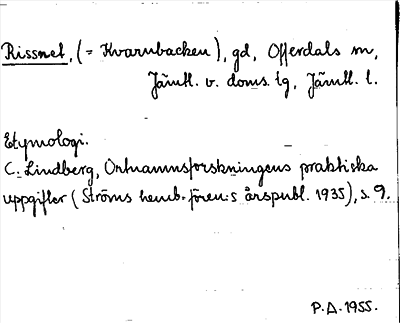 Rissnet, (= Kvarnbacken), gd, Offerdals sn,
Jämtl. v. doms. tg, Jämtl. l.
Etymologi.
C. Lindberg, Ortnamnsforskningens praktiska
uppgifter (Ströms hemb. fören:s årspubl. 1935), s. 9.
P.A. 1955.